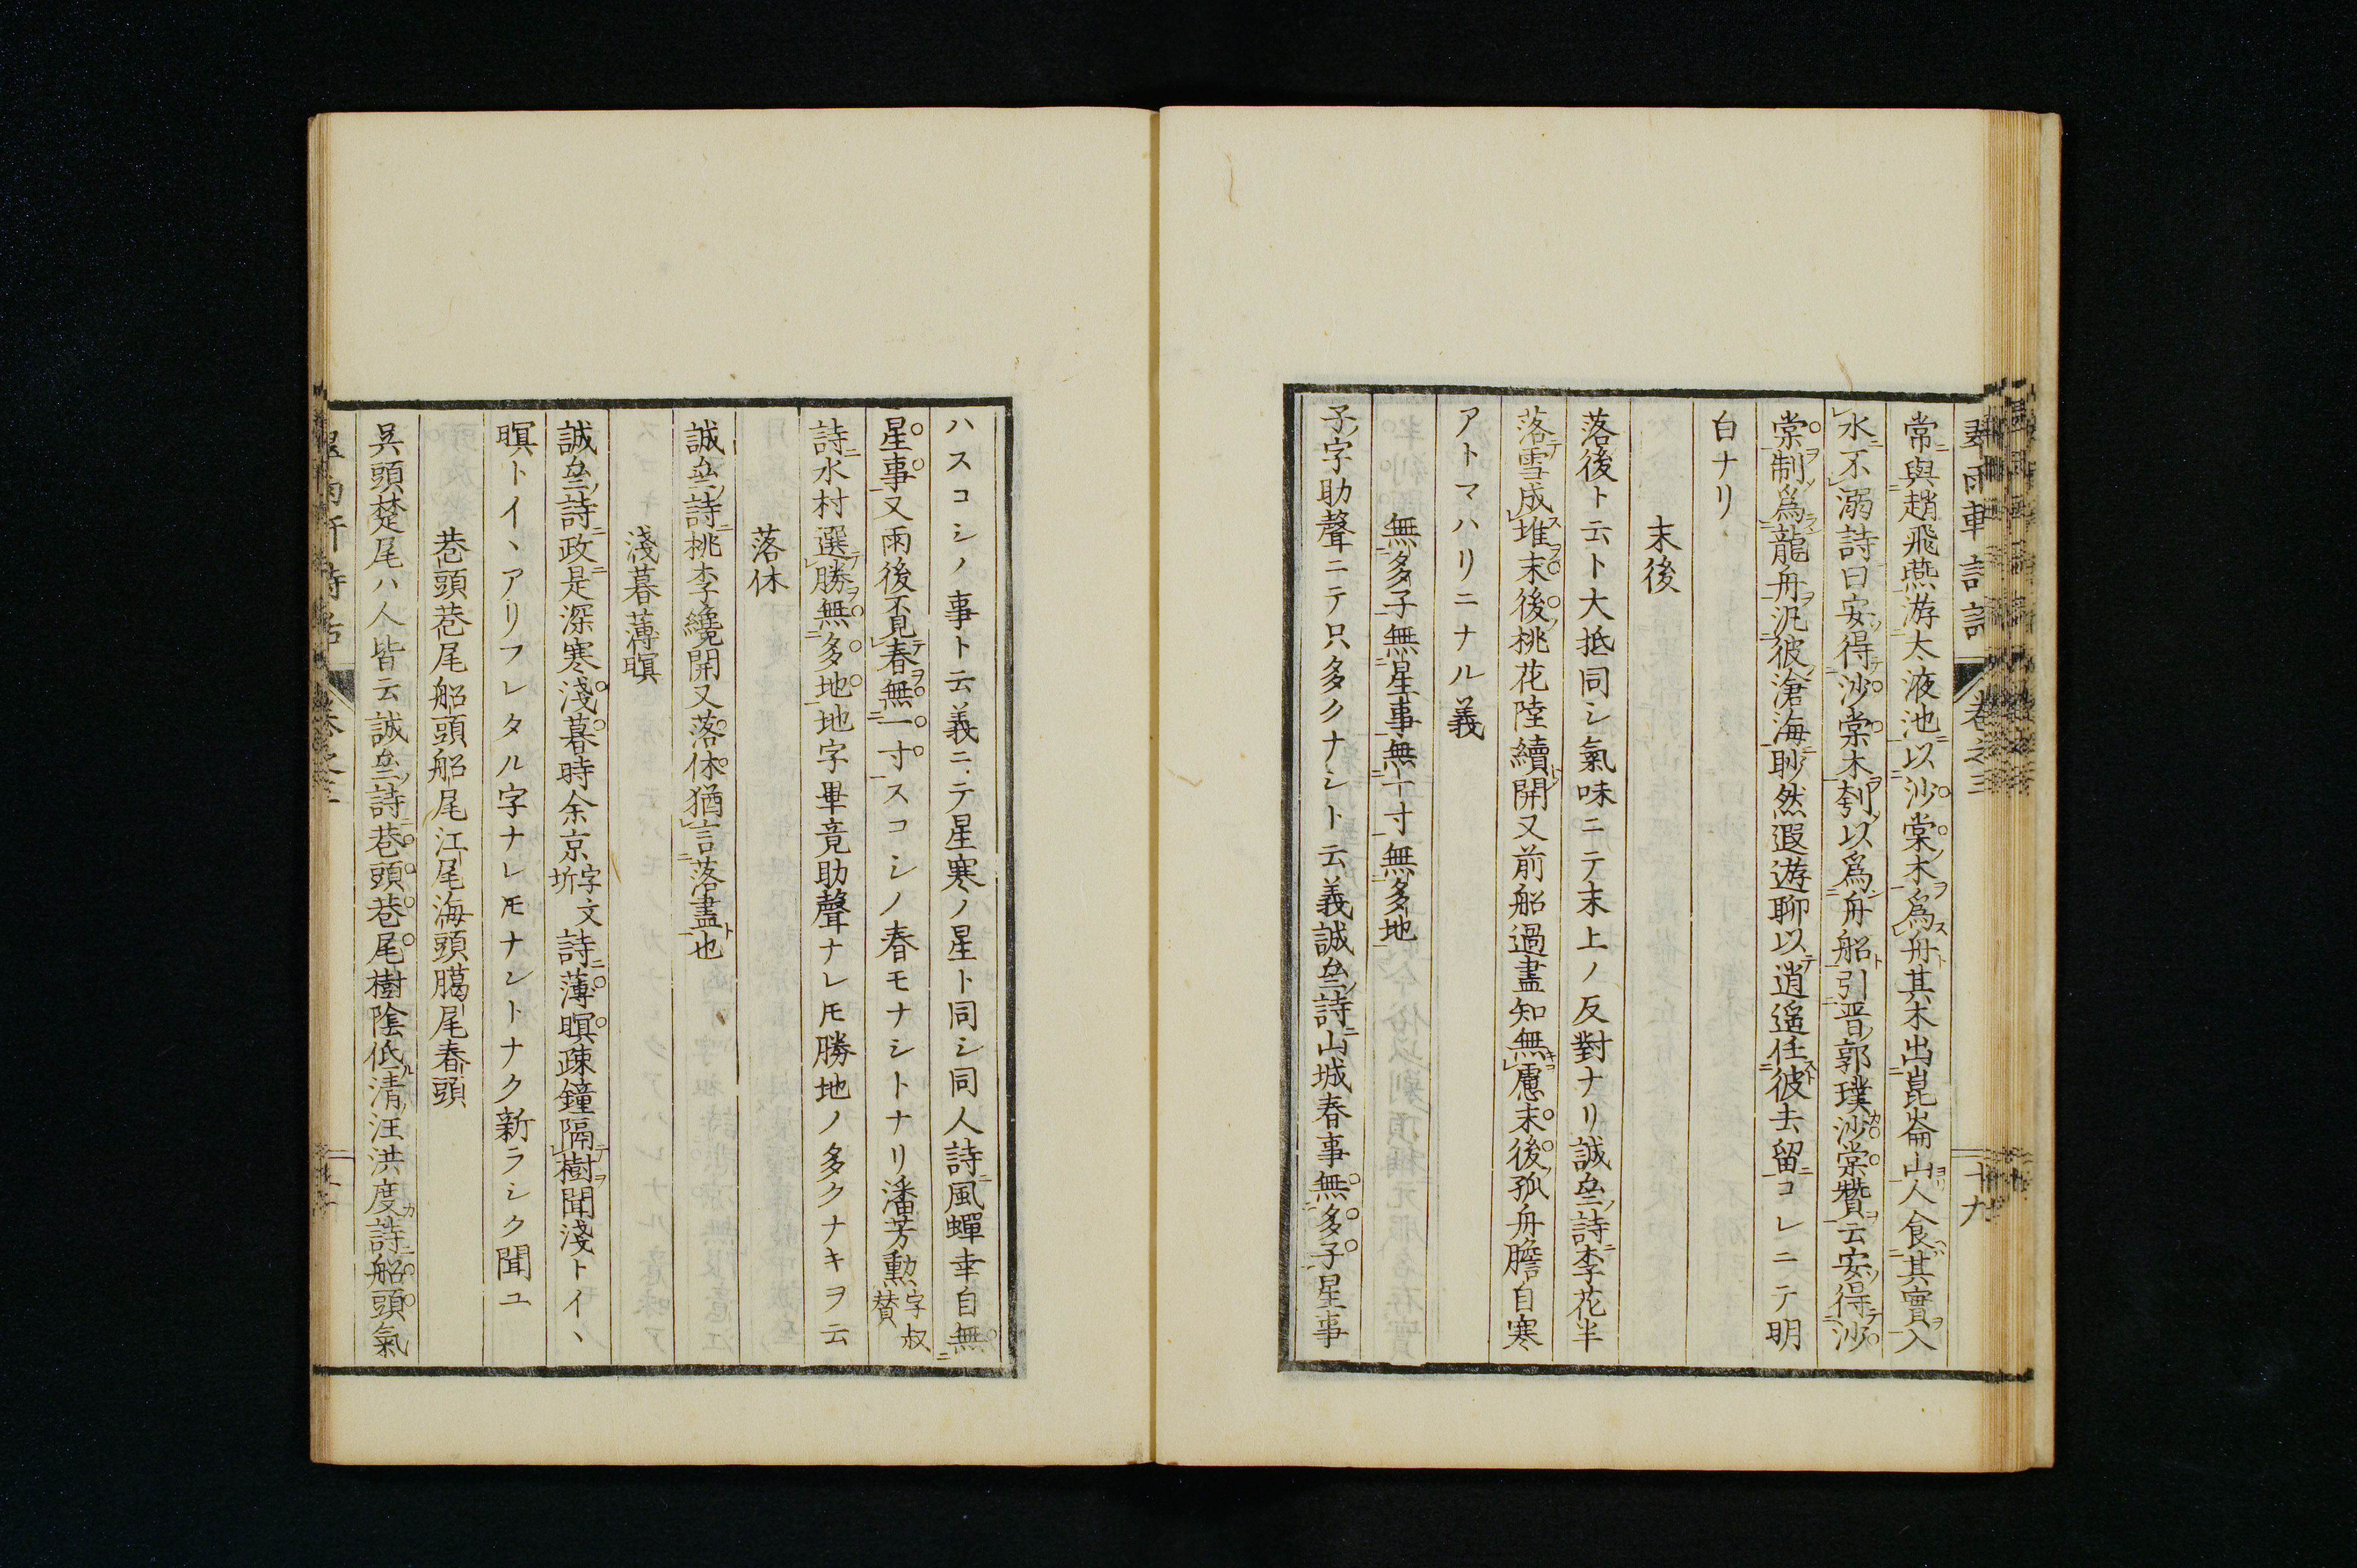 常與趙飛燕游太液池以沙棠木爲舟其木出崑崙山人食其實入
水不溺詩曰安得沙棠木刳以爲舟船引晋郭璞沙棠贊云安得沙
棠制爲龍舟汎彼滄海眇然遐遊聊以逍遥任彼去留コレニテ明
白ナリ
末後
落後ト云ト大抵同シ氣味ニテ末上ノ反對ナリ誠齋詩李花半
落雪成堆末後桃花陸續開又前船過盡知無慮末後孤舟膽自寒
アトマハリニナル義
無多子無星事無一寸無多地
子字助聲ニテ只多クナシト云義誠齋詩山城春事無多子星事
ハスコシノ事ト云義ニテ星寒ノ星ト同シ同人詩風蟬幸自無
星事又雨後不見春無一寸スコシノ春モナシトナリ潘芳勲字叔賛
詩水村選勝無多地地字畢竟助聲ナレモ勝地ノ多クナキヲ云
落休
誠齋詩桃李纔開又落休猶言落盡也
淺暮薄暝
誠齋詩政是深寒淺暮時余京字文圻詩薄暝疎鐘隔樹聞淺トイヽ
暝トイヽアリフレタル字ナレモナントナク新ラシク聞ユ
巷頭巷尾船頭船尾江尾海頭臈尾春頭
吳頭楚尾ハ人皆云誠齋詩巷頭巷尾樹陰低清汪洪度詩船頭氣